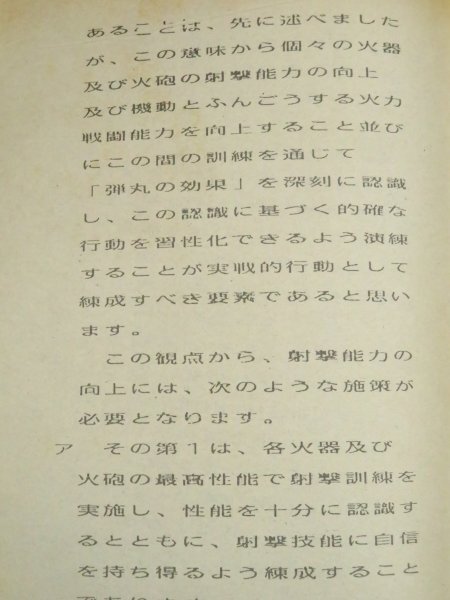 あることは、先に述べました
が、この意味から個々の火器
及び火砲の射撃能力の向上
及び機動とふんごうする火力
戦闘能力を向上すること並び
にこの間の訓練を通じて
「弾丸の効果」を深刻に認識
し、この認識に基づく的確な
行動を習性化できるよう演練
することが実戦的行動として
練成すべき要素であると思い
ます。
この観点から、射撃能力の
向上には、次のような施策が
必要となります。
ア　その第1は、各火器及び
火砲の最高性能で射撃訓練を
実施し、性能を十分に認識す
るとともに、射撃技能に自信
を持ち得るよう練成すること